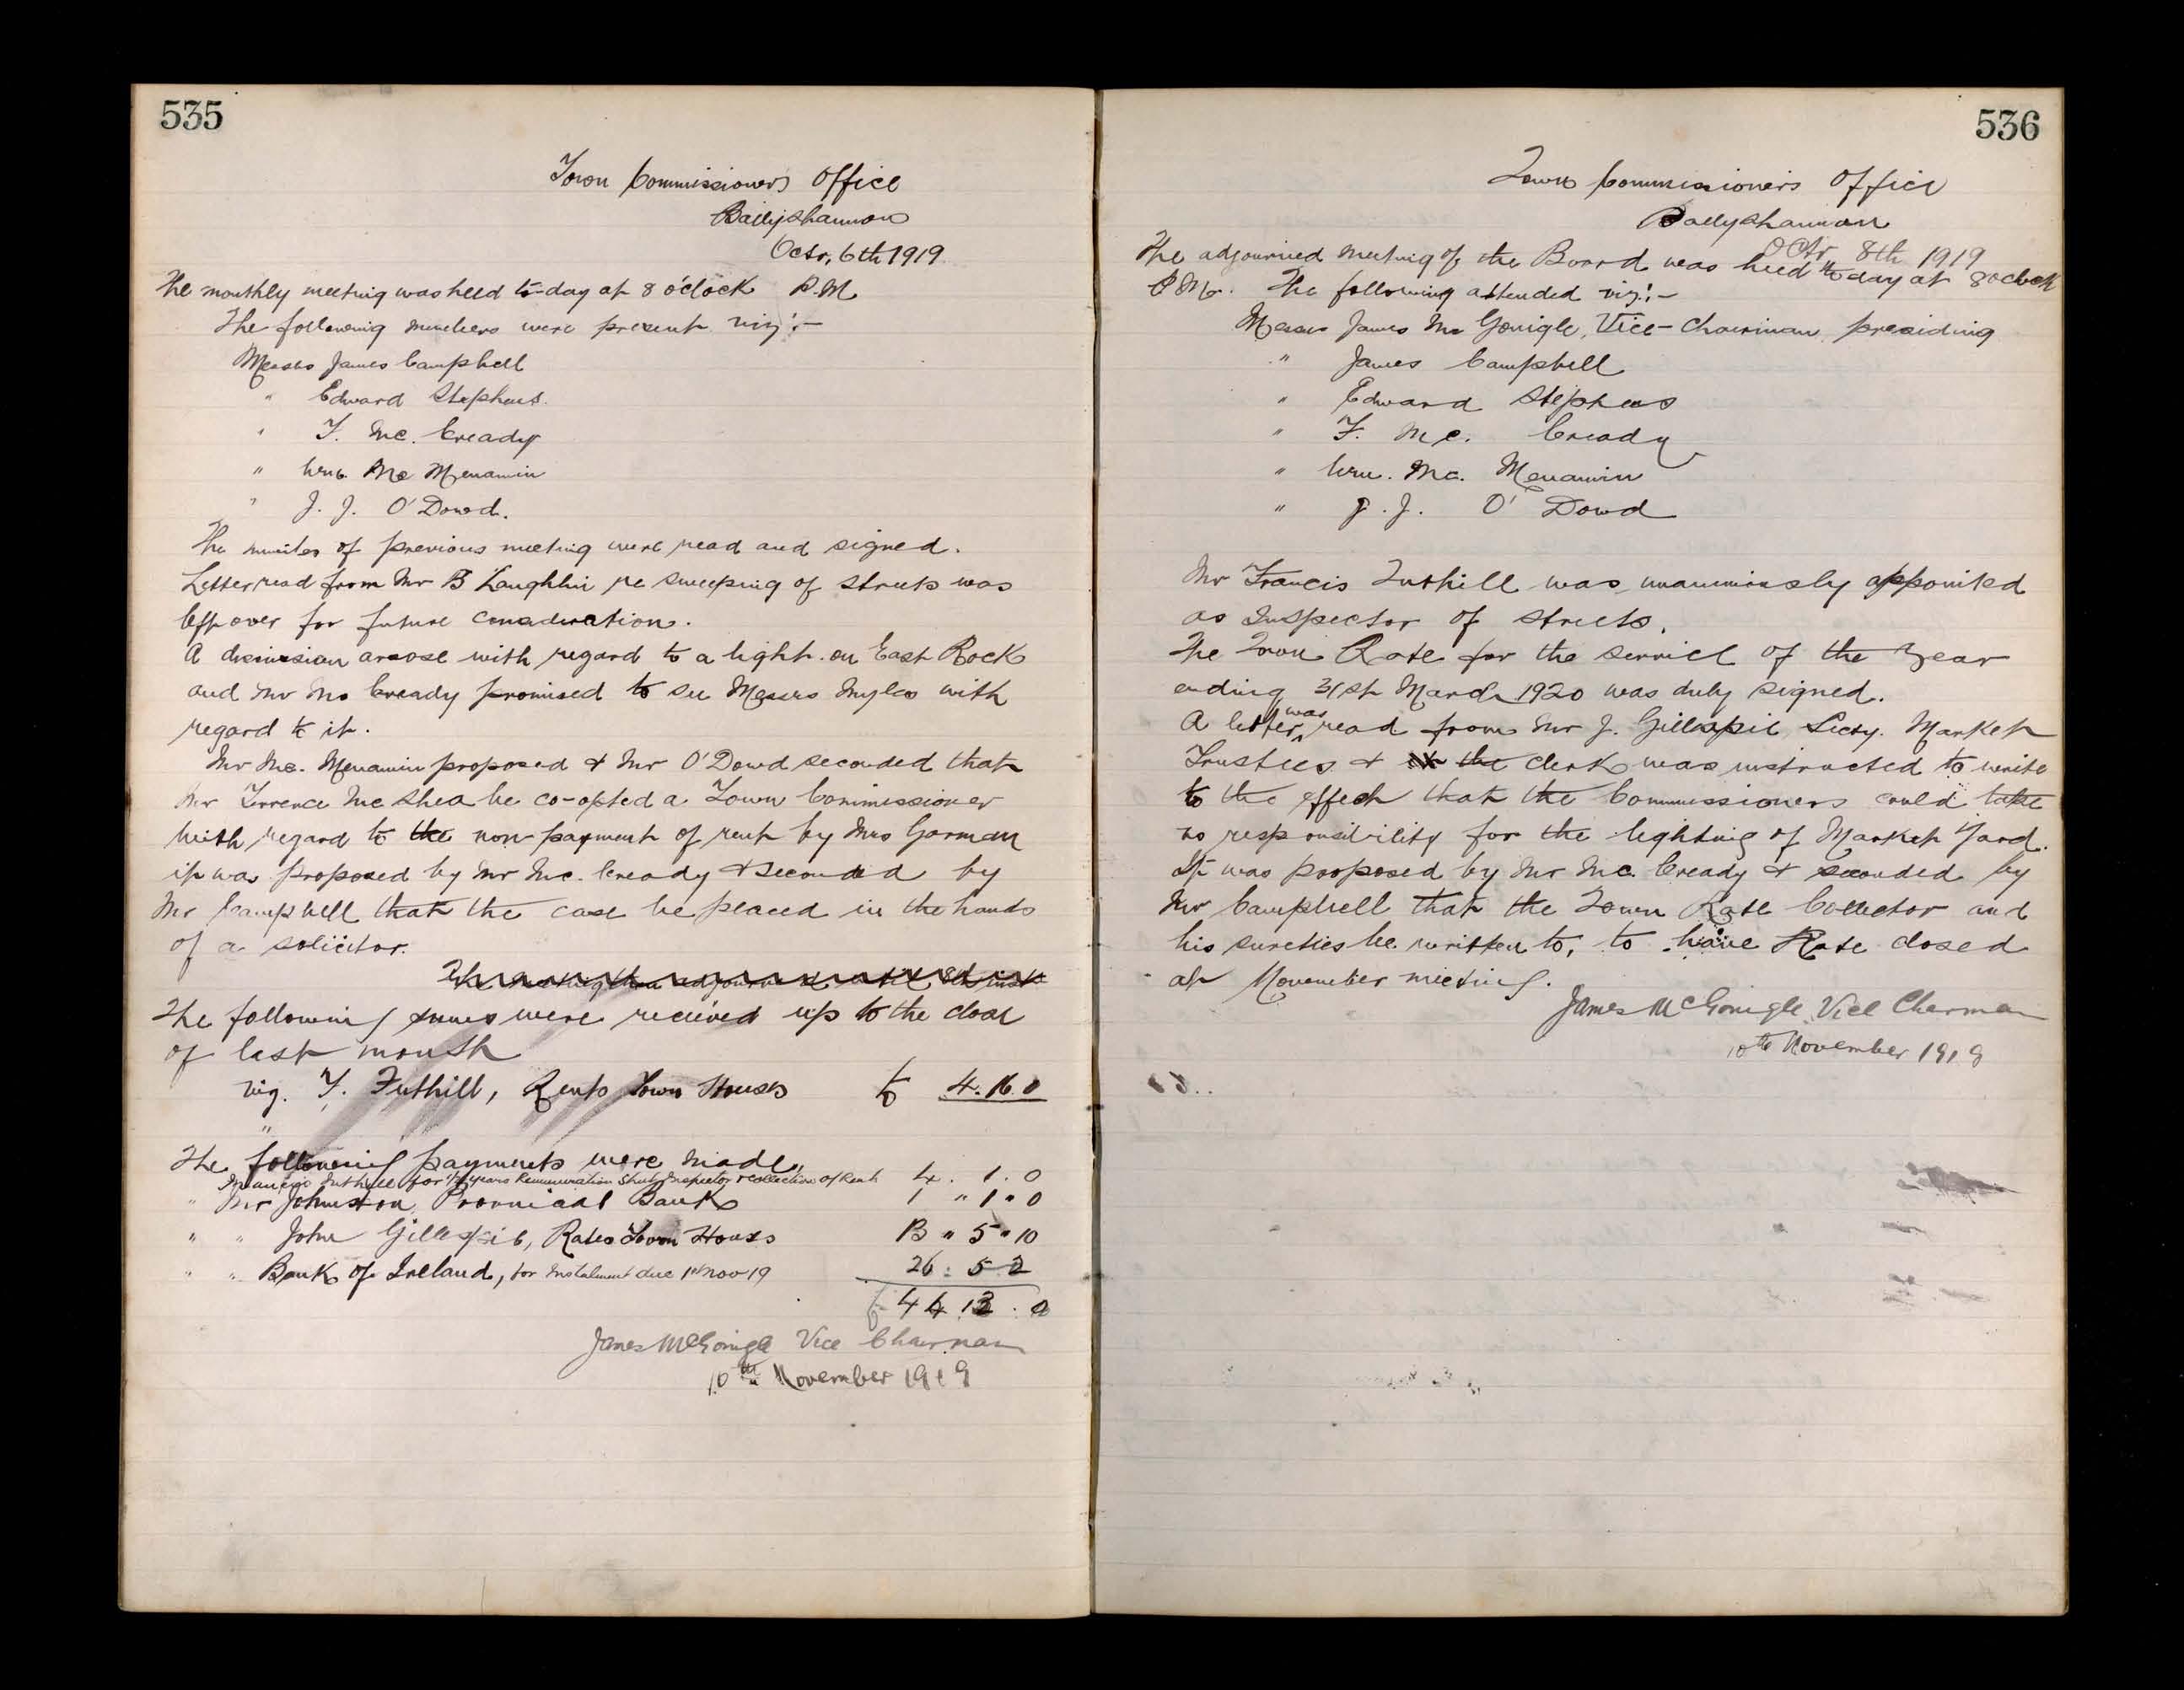 535
Town Commissioners Office
Ballyshannon
Octr, 6th 1919
The monthly meeting was held to-day at 8 o'clock P.M
The following members were present viz:-
Messrs James Campbell
" Edward Stephens.
" F. Mc. Cready
" Wm. Mc Menamin
" J. J. O'Dowd.
The minutes of previous meeting were read and signed.
Letter read from Mr B Laughlin re sweeping of streets was
left over for future consideration.
A discussion arose with regard to a light on East Rock
and Mr Mc Cready promised to see Messrs Myles with
regard to it.
Mr Mc. Menamin proposed & Mr O'Dowd seconded that
Mr Terrence Mc Shea be co-opted a Town Commissioner
With regard to the non-payment of rent by Mrs Gorman
it was proposed by Mr Mc. Cready & seconded by
Mr Campbell that the case be placed in the hands
of a solicitor.
The meeting then adjourned until 8th inst
The following sums were recieved up to the close
of last month
viz. F. Tuthill, Rents Town Houses £ 4.16.0
"
The following payments were made,
Francis Tuthill for 1/2 years Remuneration Street Inspector & collection of Rent 4. 1. 0
" Mr Johnston, Provincial Bank 1 " 1 " 0
" " John Gillespie, Rates Town Houses 13 " 5 " 10
" " Bank of Ireland, for Instalment due 1st Nov 19 26 : 5 2
£ 44.13.0
James McGonigle Vice Chairman
10th November 1919
536
Town Commissioners Office
Ballyshannon
Octr 8th 1919
The adjourned meeting of the Board was held to day at 8 oclock
P.M. The following attended viz:-
Messrs James Mc Gonigle, Vice-Chairman, presiding
" James Campbell
" Edward Stephens
" F. Mc. Cready
" Wm. Mc. Menamin
" J. J. O'Dowd
Mr Francis Tuthill was unanimously appointed
as Inspector of streets.
The Town Rate for the service of the year
ending 31st March 1920 was duly signed.
A letter was read from Mr J. Gillespie Secty. Market
Trustees & the clerk was instructed to write
to the effect that the Commissioners could take
no responsibility for the lighting of Market Yard.
It was proposed by Mr Mc. Cready & seconded by
Mr Campbell that the Town Rate Collector and
his sureties be written to, to have Rate closed
at November meeting.
James McGonigle Vice Cherman
10th November 1919